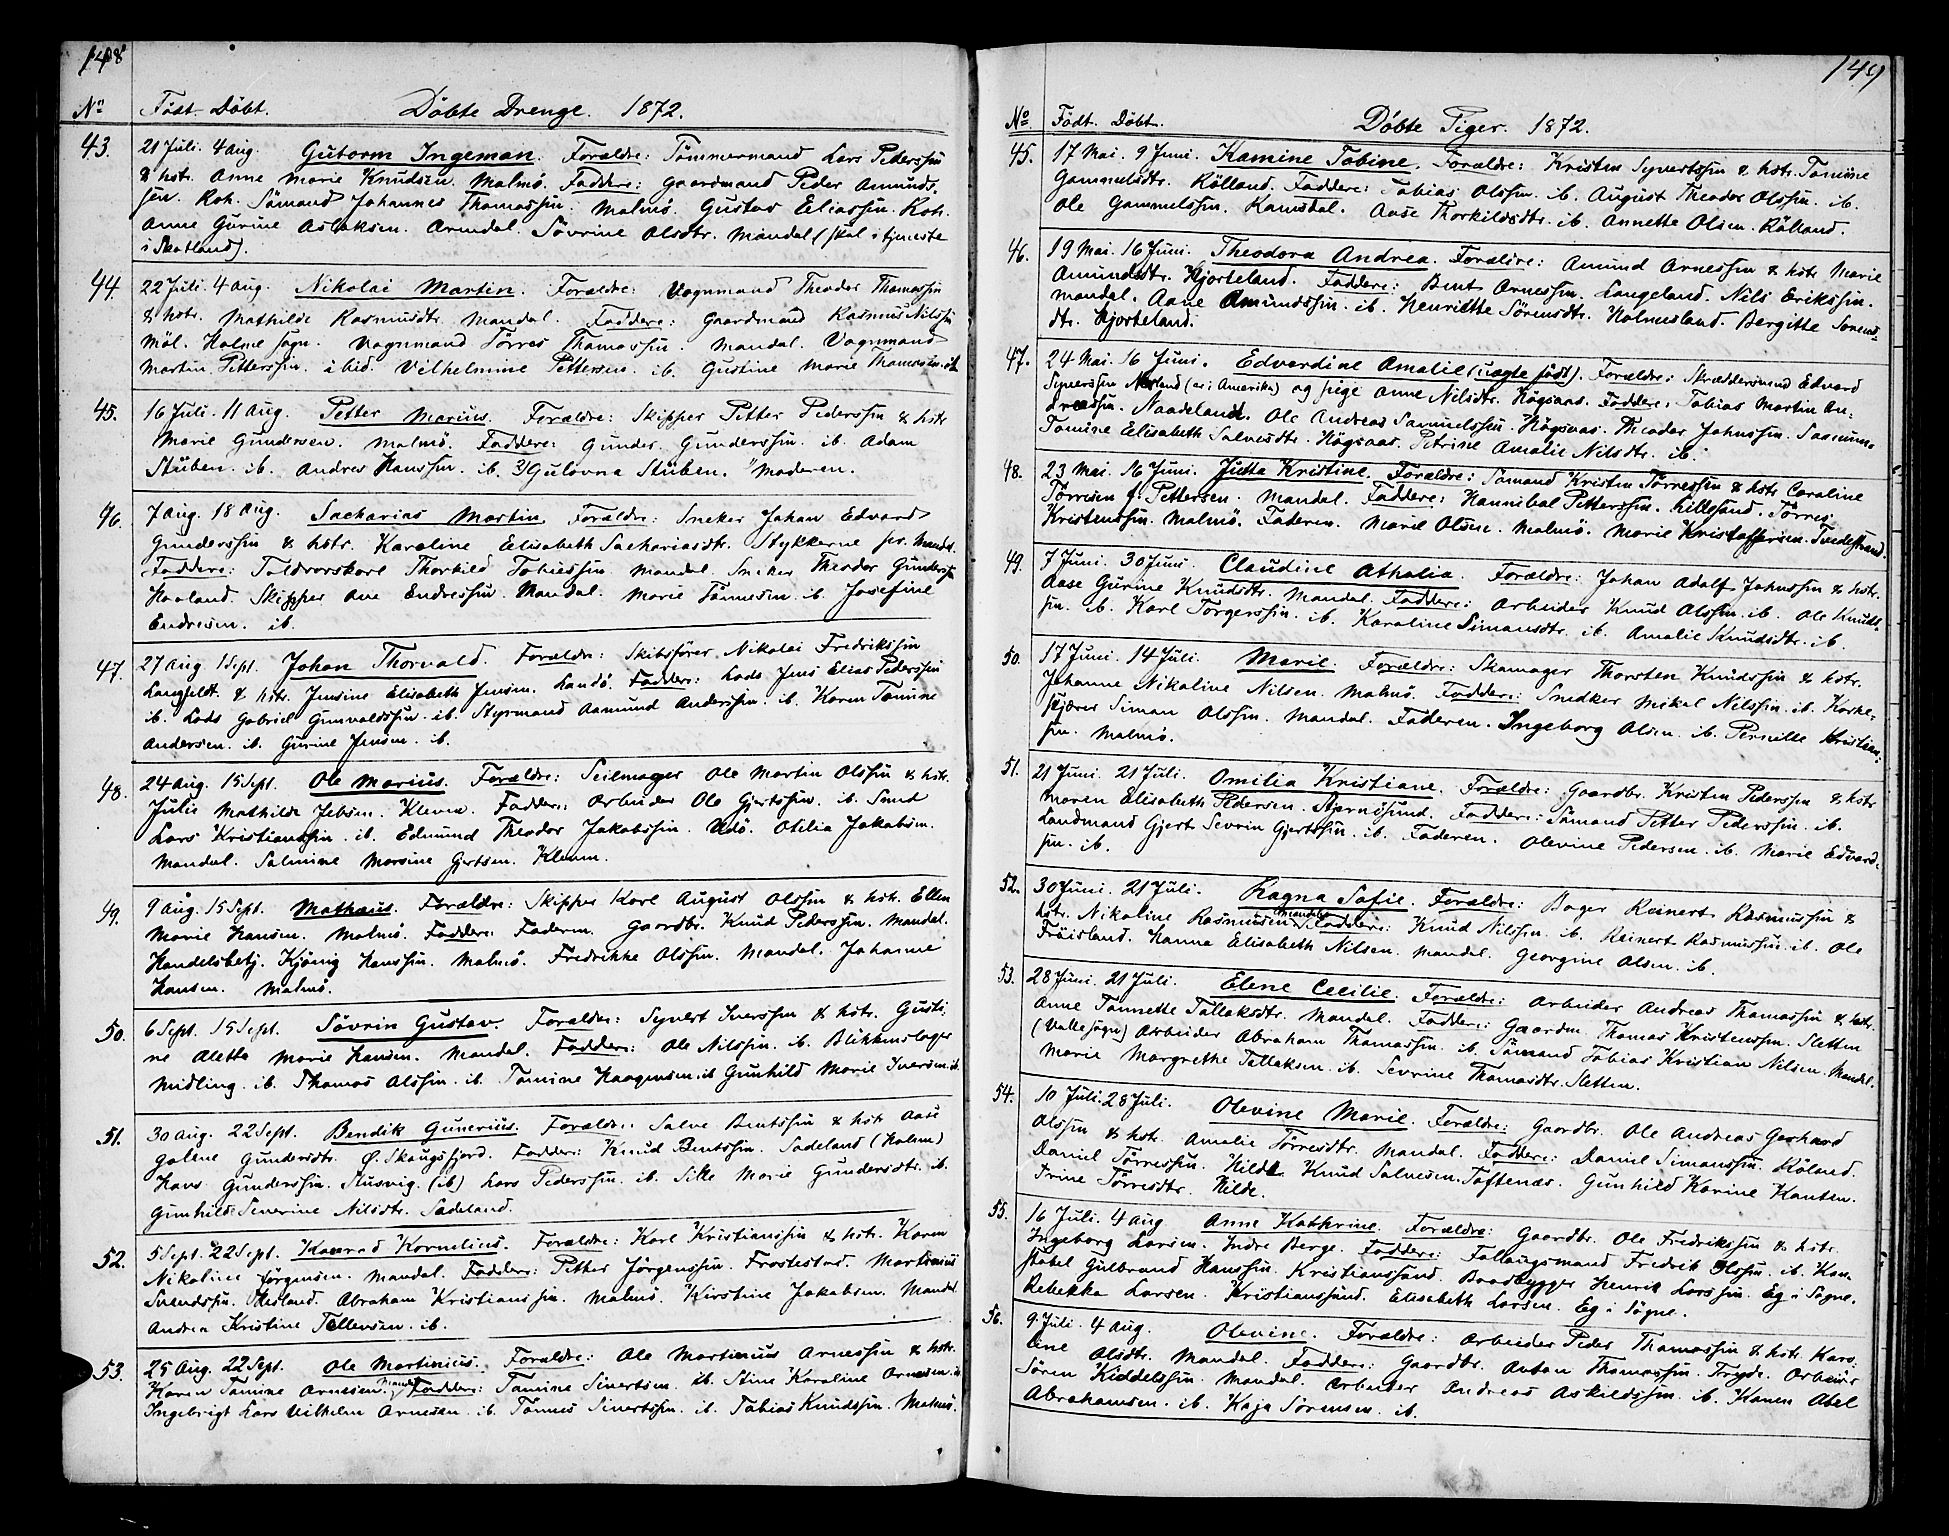 148
No Født. Døbt. Döbte Drenge. 1872.
43. 21 Juli. 4 Aug. Gutorm Ingeman. Forældre: Tømmermand Lars Pederssøn
& hstr. Anne Marie Knudsen. Malmö. Faddere: Gaardmand Peder Amunds.
sen. Roh. Sömand Johannes Thomassen. Malmö. Gustav Eliassen. Roh.
Anne Gurine Aslaksen. Arendal. Sövrine Olsdtr. Mandal (skal i tjeneste
i Skotland).
44. 22 Juli. 4 Aug. Nikolai Martin. Forældre: Vognmand Theodor Thomassen
& hstr. Mathilde Rasmusdtr. Mandal. Faddere: Gaardmand Rasmus Nilssen
Möl. Holme sogn. Vognmand Törres Thomassen. Mandal. Vognmand
Martin Petterssen. ibid. Vilhelmine Pettersen. ib. Gustine Marie Thomassen. ib
45. 16 Juli. 11 Aug. Petter Marius. Forældre: Skipper Petter Pederssen & hstr
Marie Gundersen. Malmö. Faddere: Gunder Gunderssen. ib. Adam
Stüben. ib. Andres Hanssen. ib. Gulovna Stüben. Moderen.
46. 7 Aug. 18 Aug. Sacharias Martin. Forældre: Sneker Johan Edvard
Gunderssen & hstr. Karoline Elisabeth Sachariasdtr. Stykkerne pr. Mandal.
Faddere: Toldrorskarl Thorkild Tobiassen Mandal. Sneker Theodor Gunderssen
Haaland. Skipper Ane Endressen. Mandal. Marie Tönnesen. ib. Josefine
Endresen. ib.
47. 27 Aug. 1 Sept. Johan Thorvald. Forældre: Skibsfører Nikolai Fredrikssen
Langfeldt. & hstr. Jensine Elisabeth Jensen. Sandö. Faddere: Lods Jens Elias Pederssen
ib. Lods Gabriel Gunvaldssen. ib. Styrmand Aamund Anderssen. ib. Karen Tomine
Andersen. ib. Gurine Jensen. ib.
48. 24 Aug. 15 Sept. Ole Marius. Forældre: Seilmager Ole Martin Olssen & hstr.
Julie Mathilde Jebsen. Kleven. Faddere: Arbeider Ole Gjertssen. ib. Smed
Lars Kristianssen. ib. Edmund Theodor Jakobssen. Udö. Otilia Jakobsen.
Mandal. Salmine Marsine Gjertsen. Kleven.
49. 9 Aug. 15 Sept. Mathæus. Forældre: Skipper Karl August Olssen & hstr. Ellen
Marie Hansen. Malmö. Faddere: Faderen. Gaardbr. Knud Pederssen. Mandal.
Handelsbetj. Kjönig Hanssen. Malmö. Fredrikke Olssen. Mandal. Johanne
Hansen. Malmö.
50. 6 Sept. 15 Sept. Sövrin Gustav. Forældre: Syvert Iverssen & hstr. Gusti.
ne Alette Marie Hansen. Mandal. Faddere: Ole Nilssen. ib. Blikkenslager
Midling. ib. Thomas Olssen. ib. Tomine Haagensen. ib Gunhild Marie Iversen. ib.
51. 30 Aug. 22 Sept. Bendik Gunerius. Forældre: Salve Bentssen & hstr Aase
Golene Gundersdtr. Ø. Skaugsfjord. Faddere: Knud Bentssen. Sadeland (Holum)
Hans Gunderssen. Stusvig. (ib) Lars Pederssen. ib. Silke Marie Gundersdtr. ib.
Gunhild Severine Nilsdtr. Sadeland.
52. 5 Sept. 22 Sept. Konrad Kornelius. Forældre: Karl Kristianssen & hstr. Karen
Nikoline Jörgensen. Mandal. Faddere: Petter Jörgenssen. Frostestad. Martinius
Svendssen. Abraham Kristianssen. Malmö. Kirstine Jakobsen. Mandal
Andrea Kristine Tellevsen. ib.
53. 25 Aug. 22 Sept. Ole Martinius. Forældre: Ole Martinius Arnessen & hstr.
Karen Tomine Arnesen. Mandal Faddere: Tomine Sivertsen. ib. Stine Karoline Arnesen. ib
Ingebrigt Lars Vilhelm Arnesen. ib. Tönnes Sivertssen. ib. Tobias Knudssen. Malmö.
149
No. Födt. Döbt. Döbte Piger. 1872.
45. 17 Mai. 9 Juni. Kamine Tobine. Forældre: Kristen Syvertssen & hstr. Tomine
Gammelsdtr. Rölland. Faddere: Tobias Olssen. ib. August Theodor Olssen. ib.
Ole Gammelssen. Ramsdal. Aase Thorkildsdtr. ib. Annette Olsen. Rölland.
46. 19 Mai. 16 Juni. Theodora Andrea. Forældre: Amund Arnessen & hstr Marie
Amundsdtr. Hjorteland. Faddere: Bent Arnessen. Langeland. Nils Erikssen.
Mandal. Aane Amundssen. ib. Henriette Sörensdtr. Holmesland. Bergitte Sörens-
dtr. Hjorteland.
47. 24 Mai. 16 Juni. Edvardine Amalie (uægte født). Forældre: Skræddersvend Edvard
Syverssen (a: Amerika) og Pige Anne Nilsdtr. Högsaas. Faddere: Tobias Martin An-
dreassen. Naadeland. Ole Andreas Samuelssen. Högsaas. Theodor Johnssen.
Tomine Elisabeth Salvesdtr. Högsaas. Petrine Amalie Nilsdtr. ib.
48. 23 Mai. 16 Juni. Jutta Kristine. Forældre: Sömand Kristen Törressen & hstr Caroline
Törresen f. Pettersen. Mandal. Faddere: Hannibal Petterssen. Lillesand. Törres
Kristenssen. Malmö. Faderen. Marie Olsen. Malmö. Marie Kristoffersen. Tvedestrand.
49. 7 Juni. 30 Juni. Claudine Athalia. Forældre: Johan Adolf Johnssen & hstr.
Aase Gurine Knudsdtr. Mandal. Faddere: Arbeider Knud Olssen. ib. Ole Knuds-
sen. ib. Karl Torgerssen. ib. Karoline Simansdtr. ib. Amalie Knudsdtr. ib.
50. 17 Juni. 14 Juli. Marie. Forældre: Skomager Thorsten Knudssen & hstr.
Johanne Nikoline Nilsen. Malmö. Faddere: Snedker Mikal Nilssen. ib. Korke-
skjærer Siman Olssen. Mandal. Faderen. Ingeborg Olsen. ib. Pernille Kristian-
sen. Malmö.
51. 21 Juni. 21 Juli. Omilia Kristiane. Forældre: Gaardbr. Kristen Pederssen & hstr
Maren Elisabeth Pedersen. Stjernösund. Faddere: Sömand Petter Pederssen. ib.
Landmand Gjert Sevrin Gjertssen. ib. Faderen. Olevine Pedersen. ib. Marie Edvard-
sen. ib.
52. 30 Juni. 21 Juli. Ragna Sofie. Forældre: Bager Reinert Rasmussen &
hstr. Nikoline Rasmussen. Mandal Faddere: Knud Nilssen. ib. Reinert Rasmussen. ib. Ole
Fröisland. Hanna Elisabeth Nilsen. Mandal. Georgine Olsen. ib.
53. 28 Juni. 21 Juli. Elene Cecilie. Forældre: Arbeider Andreas Thomassen & hstr.
Anne Tonnette Tallaksdtr. Mandal. Faddere: Gaardm. Thomas Kristenssen. Sletten
(Vallesogn) Arbeider Abraham Thomassen. ib. Sömand Tobias Kristian Nilsen. Mandal.
Marie Margrethe Tallaksen. ib. Severine Thomasdtr. Sletten.
54. 10 Juli. 28 Juli. Olevine Marie. Forældre: Gaardbr. Ole Andreas Gerhard
Olssen & hstr. Amalie Törresdtr. Mandal. Faddere: Daniel Simanssen. Röland.
Daniel Törressen. Hilde. Knud Salvesen. Toftenæs. Gunhild Karine Hansen.
Trine Törresdtr. Hilde.
55. 16 Juli. 4 Aug. Anne Kathrine. Forældre: Gaardbr. Ole Fredrikssen & hstr.
Ingeborg Larsen. Indre Berge. Faddere: Follaugsmand Fredrik Olssen. ib. Kon-
stabel Gulbrand Hanssen. Kristianssand. Baadbygger Henrik Larssen. Eg i Sogne.
Rebekka Larsen. Kristianssand. Elisabeth Larsen. Eg i Sögne.
56. 9 Juli. 4 Aug. Olevine. Forældre: Arbeider Peder Thomassen & hstr. Karo-
line Olsdtr. Mandal. Faddere: Gaardbr. Anton Thomassen. Tryde. Arbeider
Sören Kiddelssen. Mandal. Arbeider Andreas Askildssen. ib. Karen Abel
Abrahamsen. ib. Kaja Sörensen. ib.